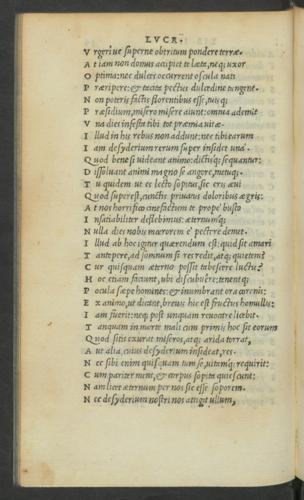 LVCR.
V rgeri ue superne obtritum pondere terræ.
A t iam non domus accipiet te læta, neq; uxor
O ptima: nec dulces occurrent oscula nati
P ræripere: & tacita pectus dulcedine tangent.
N on poteris factis florentibus esse, tuisq;
P ræsidium, misero misere aiunt: omnia ademit
V na dies infesta tibi tot præmia uitæ.
I llud in his rebus non addunt: nec tibi earum
I am desyderium rerum super insidet una.
Q uod bene si uideant animo: dictisq; sequantur:
D issoluant animi magno se angore, metuq;.
T u quidem ut es lecto sopitus, sic eris æui
Q uod superest, cunctis priuatus doloribus ægris:
A t nos horrifico cinefactum te prope busto
I nsatiabiliter deflebimus: æternumq;
N ulla dies nobis mœrorem e pectore demet.
I llud ab hoc igitur quærendum est: quid sit amari
T antopere, ad somnum si res redit, atq; quietem:
C ur quisquam æterno possit tabescere luctu?
H oc etiam faciunt, ubi discubuere: tenentq;
P ocula sæpe homines: & inumbrant ora coronis:
E x animo, ut dicant, breuis hic est fructus homullis:
I am fuerit: neq; post unquam reuocare licebit.
T anquam in morte mali cum primis hoc sit eorum
Q uod sitis exurat miseros, atq; arida torrat,
A ut alia, cuius desyderium insideat, res.
N ec sibi enim quisquam tum se, uitamq; requirit:
C um pariter mens, & corpus sopita quiescunt:
N am licet æternum per nos sic esse soporem.
N ec desyderium nostri nos atigit ullum,